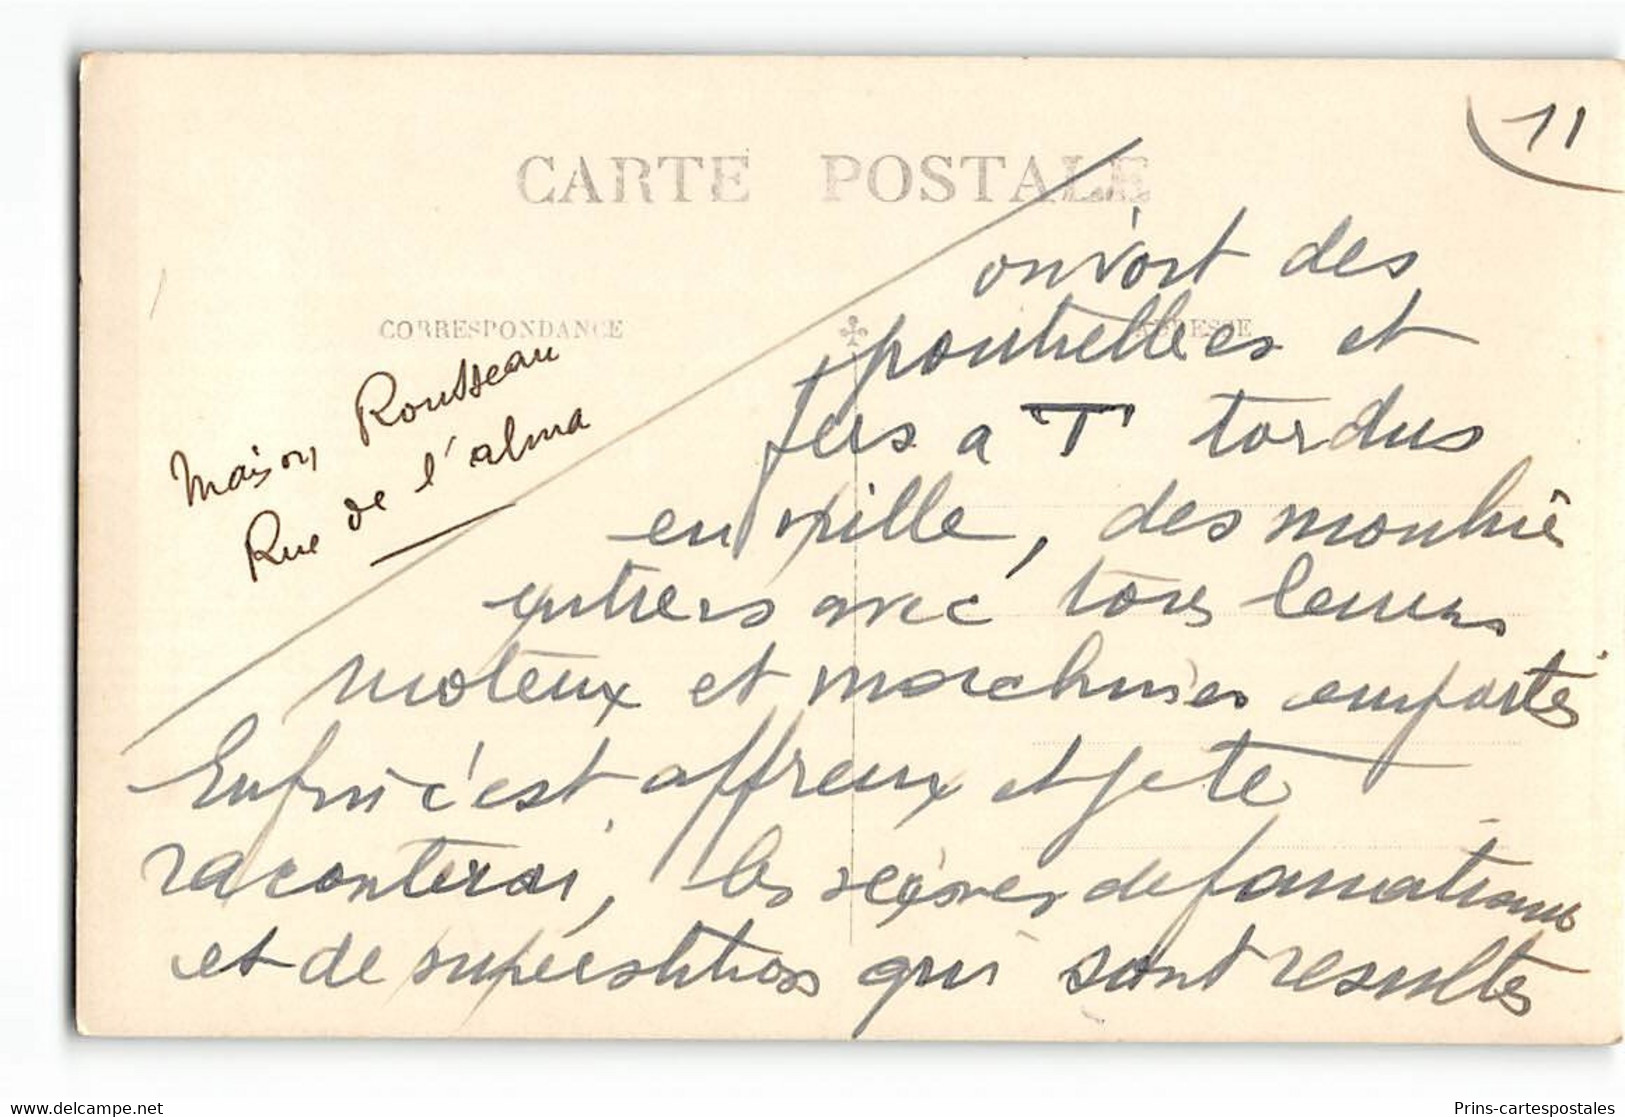 11
CARTE POSTALE
CORRESPONDANCE
ADRESSE
Maison Rousseau
Rue de l'alma
on voit des
poutrelles et
fers a "T" tordus
en vrille, des moulins
entiers avec tous leurs
moteux et machines emportés
Enfin c'est affreux et je te
raconterai, les scènes de fanatisme
et de supérstition qui sont resultés
Prins-cartespostales
www.delcampe.net